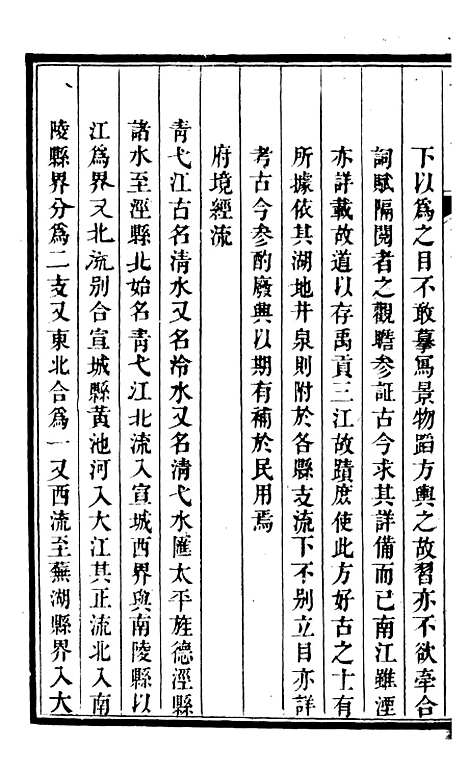 下以爲之目不敢摹寫景物蹈方輿之故習亦不欲牽合
詞賦隔閡者之觀瞻參証古今求其詳備而已南江雖湮
亦詳載故道以存禹貢三江故蹟庶使此方好古之士有
所據依其湖地井泉則附於各縣支流下不別立目亦詳
考古今參酌廢興以期有補於民用焉
府境經流
青弋江古名清水又名泠水又名清弋水匯太平旌德涇縣
諸水至涇縣北始名青弋江北流入宣城西界與南陵縣以
江爲界又北流别合宣城縣黃池河入大江其正流北入南
陵縣界分爲二支又東北合爲一又西流至蕪湖縣界入大